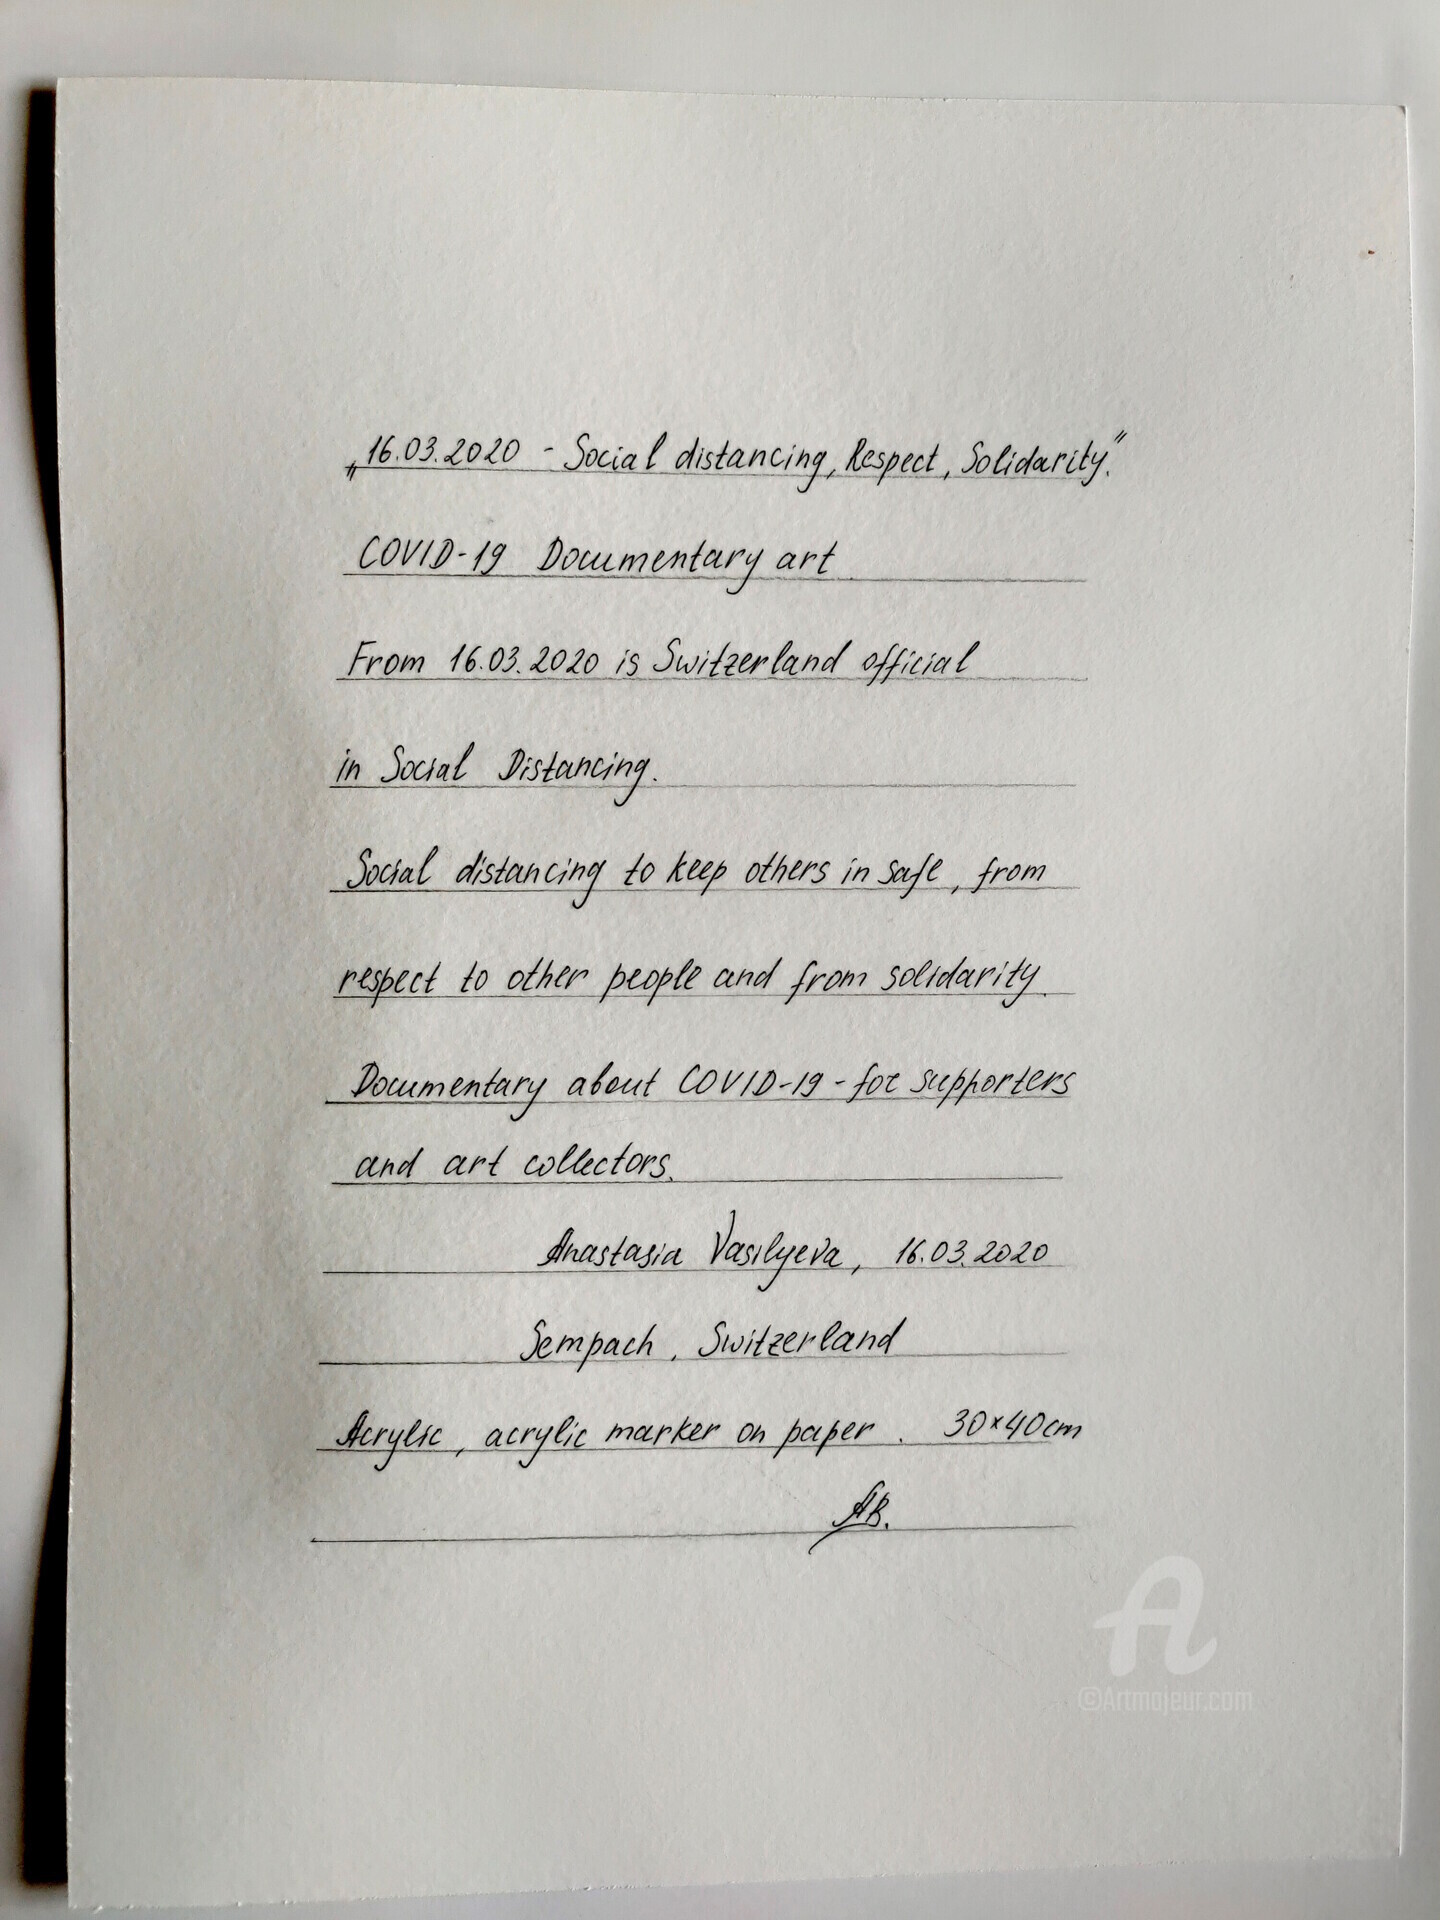 „16.03.2020 - Social distancing, Respect, Solidarity."
COVID-19 Documentary art
From 16.03.2020 is Switzerland official
in Social Distancing.
Social distancing to keep others in safe, from
respect to other people and from solidarity.
Documentary about COVID-19 - for supporters
and art collectors.
Anastasia Vasilyeva, 16.03.2020
Sempach, Switzerland
Acrylic, acrylic marker on paper. 30×40cm
AB.
A
©Artmajeur.com